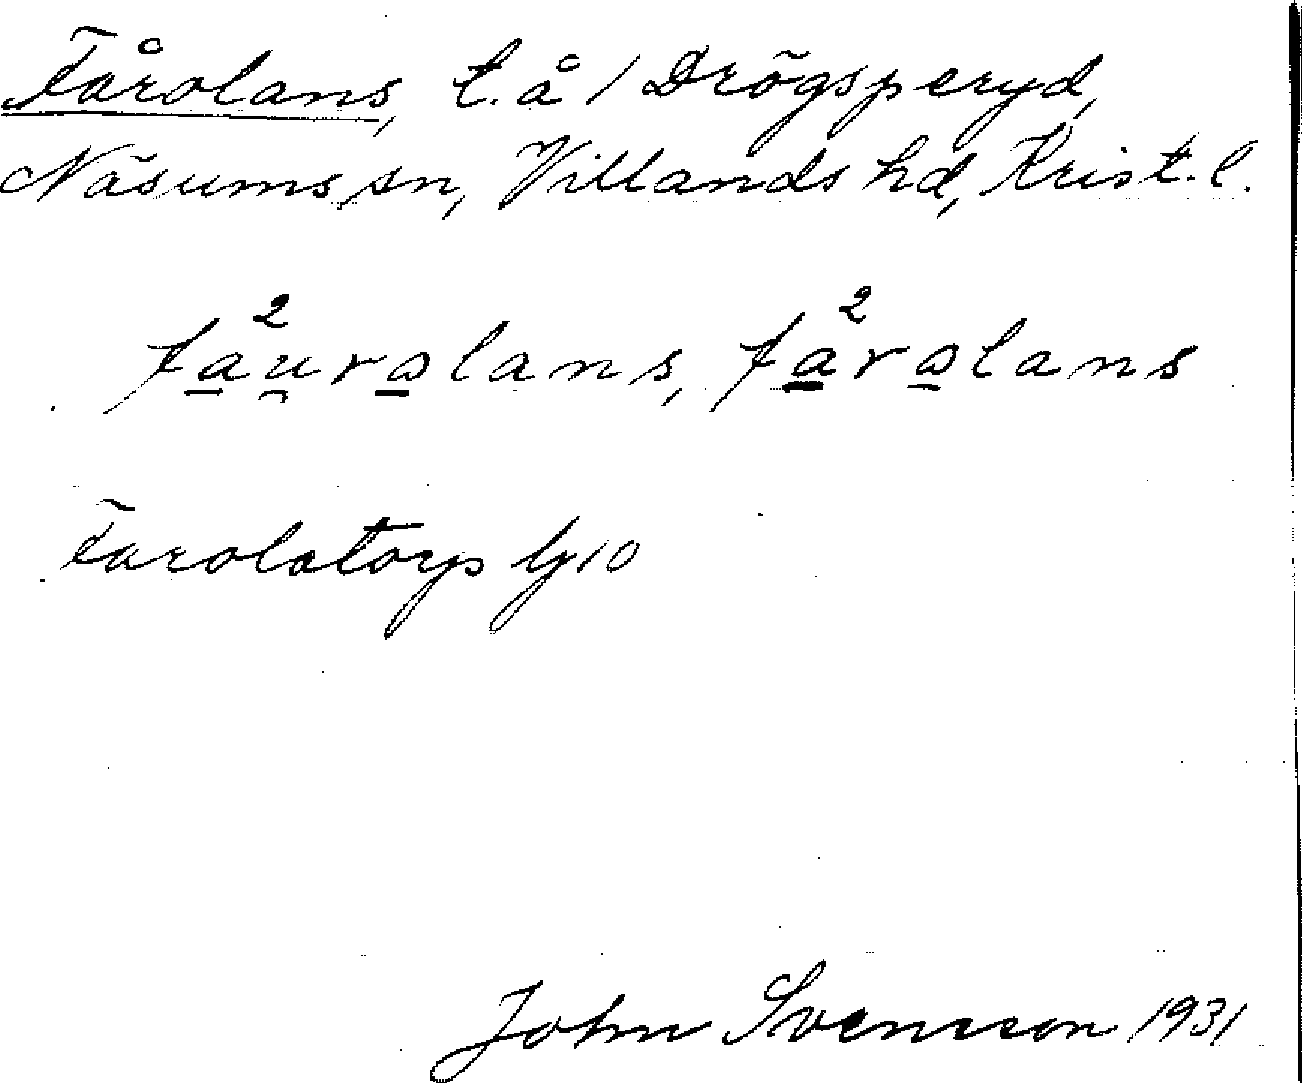 Fårolans, t. å 1 Drögsperyd,
Näsums sn, Villands hd, Krist. l.
fau²rɷlans, fa²rɷlans
Farolatorp Gj 10
John Svensson 1931